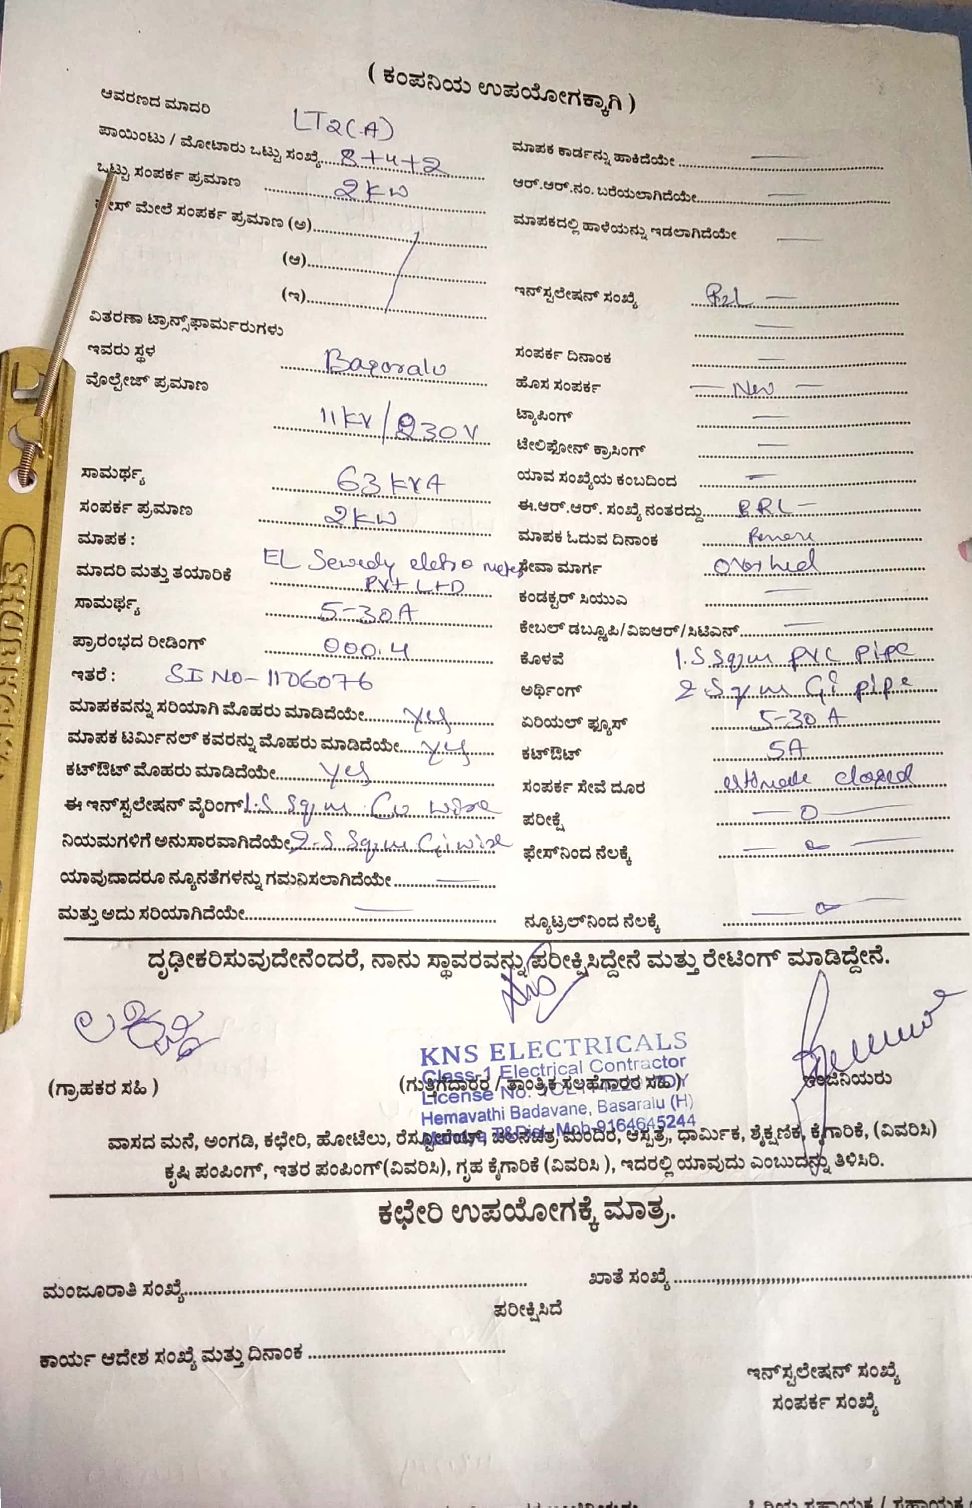 ( ಕಂಪನಿಯ ಉಪಯೋಗಕ್ಕಾಗಿ )
ಆವರಣದ ಮಾದರಿ LT2(A)
ಪಾಯಿಂಟು / ಮೋಟಾರು ಒಟ್ಟು ಸಂಖ್ಯೆ 8+4+2
ಒಟ್ಟು ಸಂಪರ್ಕ ಪ್ರಮಾಣ 2KW
ಮೇಲೆ ಸಂಪರ್ಕ ಪ್ರಮಾಣ (ಅ)
(ಆ)
(ಇ)
ವಿತರಣಾ ಟ್ರಾನ್ಸ್‌ಫಾರ್ಮರುಗಳು
ಇವರು ಸ್ಥಳ Basoralu
ವೊಲ್ಟೇಜ್ ಪ್ರಮಾಣ
11KV/230V
ಸಾಮರ್ಥ್ಯ 63KVA
ಸಂಪರ್ಕ ಪ್ರಮಾಣ 2KW
ಮಾಪಕ :
ಮಾದರಿ ಮತ್ತು ತಯಾರಿಕೆ EL Sewedy
PVT LTD
ಸಾಮರ್ಥ್ಯ 5-30A
ಪ್ರಾರಂಭದ ರೀಡಿಂಗ್ 000.4
ಇತರೆ : SI NO-1106076
ಮಾಪಕವನ್ನು ಸರಿಯಾಗಿ ಮೊಹರು ಮಾಡಿದೆಯೇ yes
ಮಾಪಕ ಟರ್ಮಿನಲ್ ಕವರನ್ನು ಮೊಹರು ಮಾಡಿದೆಯೇ yes
ಕಟ್‌ಔಟ್ ಮೊಹರು ಮಾಡಿದೆಯೇ yes
ಈ ಇನ್‌ಸ್ಟಲೇಷನ್ ವೈರಿಂಗ್ 1.5 Sqm Cu wire
ನಿಯಮಗಳಿಗೆ ಅನುಸಾರವಾಗಿದೆಯೇ 2.5 Sqm Gi wire
ಯಾವುದಾದರೂ ನ್ಯೂನತೆಗಳನ್ನು ಗಮನಿಸಲಾಗಿದೆಯೇ
ಮತ್ತು ಅದು ಸರಿಯಾಗಿದೆಯೇ
ಮಾಪಕ ಕಾರ್ಡನ್ನು ಹಾಕಿದೆಯೇ
ಆರ್.ಆರ್.ನಂ. ಬರೆಯಲಾಗಿದೆಯೇ
ಮಾಪಕದಲ್ಲಿ ಹಾಳೆಯನ್ನು ಇಡಲಾಗಿದೆಯೇ
ಇನ್‌ಸ್ಟಲೇಷನ್ ಸಂಖ್ಯೆ
ಸಂಪರ್ಕ ದಿನಾಂಕ
ಹೊಸ ಸಂಪರ್ಕ New
ಟ್ಯಾಪಿಂಗ್
ಟೇಲಿಫೋನ್ ಕ್ರಾಸಿಂಗ್
ಯಾವ ಸಂಖ್ಯೆಯ ಕಂಬದಿಂದ
ಈ.ಆರ್.ಆರ್. ಸಂಖ್ಯೆ ನಂತರದ್ದು BRL-
ಮಾಪಕ ಓದುವ ದಿನಾಂಕ
ಸೇವಾ ಮಾರ್ಗ
ಕಂಡಕ್ಟರ್ ಸಿಯುಎ
ಕೇಬಲ್ ಡಬ್ಲೂಪಿ/ವಿಐಆರ್/ಸಿಟಿಎಸ್
ಕೊಳವೆ 1.5 Sqm PVC pipe
ಅರ್ಥಿಂಗ್ 2.5 Sqm Gi pipe
ಏರಿಯಲ್ ಫ್ಯೂಸ್ 5-30A
ಕಟ್‌ಔಟ್ 5A
ಸಂಪರ್ಕ ಸೇವೆ ದೂರ estimate closed
ಪರೀಕ್ಷೆ 0
ಫೇಸ್‌ನಿಂದ ನೆಲಕ್ಕೆ 0
ನ್ಯೂಟ್ರಲ್‌ನಿಂದ ನೆಲಕ್ಕೆ 0
ದೃಢೀಕರಿಸುವುದೇನೆಂದರೆ, ನಾನು ಸ್ಥಾವರವನ್ನು ಪರೀಕ್ಷಿಸಿದ್ದೇನೆ ಮತ್ತು ರೇಟಿಂಗ್ ಮಾಡಿದ್ದೇನೆ.
KNS ELECTRICALS
Class-1 Electrical Contractor
License No.
Hemavathi Badavane, Basaralu (H)
Mob-9164645244
(ಗ್ರಾಹಕರ ಸಹಿ )
(ಗುತ್ತಿಗೆದಾರರ / ತಾಂತ್ರಿಕ ಸಲಹೆಗಾರರ ಸಹಿ)
ಇಂಜಿನಿಯರು
ವಾಸದ ಮನೆ, ಅಂಗಡಿ, ಕಛೇರಿ, ಹೋಟೆಲು, ರೆಸ್ಟೋರೆಂಟ್, ಚಲನಚಿತ್ರ ಮಂದಿರ, ಆಸ್ಪತ್ರೆ, ಧಾರ್ಮಿಕ, ಶೈಕ್ಷಣಿಕ, ಕೈಗಾರಿಕೆ, (ವಿವರಿಸಿ)
ಕೃಷಿ ಪಂಪಿಂಗ್, ಇತರ ಪಂಪಿಂಗ್(ವಿವರಿಸಿ), ಗೃಹ ಕೈಗಾರಿಕೆ (ವಿವರಿಸಿ ), ಇದರಲ್ಲಿ ಯಾವುದು ಎಂಬುದನ್ನು ತಿಳಿಸಿರಿ.
ಕಛೇರಿ ಉಪಯೋಗಕ್ಕೆ ಮಾತ್ರ.
ಮಂಜೂರಾತಿ ಸಂಖ್ಯೆ
ಖಾತೆ ಸಂಖ್ಯೆ
ಪರೀಕ್ಷಿಸಿದೆ
ಕಾರ್ಯ ಆದೇಶ ಸಂಖ್ಯೆ ಮತ್ತು ದಿನಾಂಕ
ಇನ್‌ಸ್ಟಲೇಷನ್ ಸಂಖ್ಯೆ
ಸಂಪರ್ಕ ಸಂಖ್ಯೆ